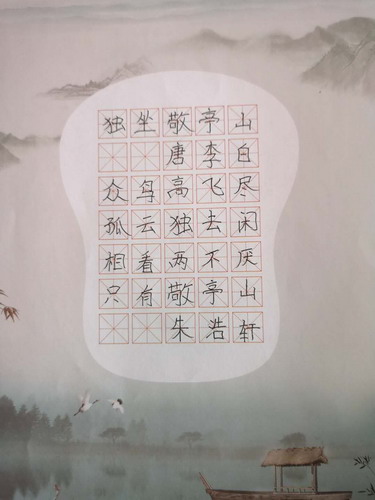 独坐敬亭山
唐李白
众鸟高飞尽
孤云独去闲
相看两不厌
只有敬亭山
朱浩轩